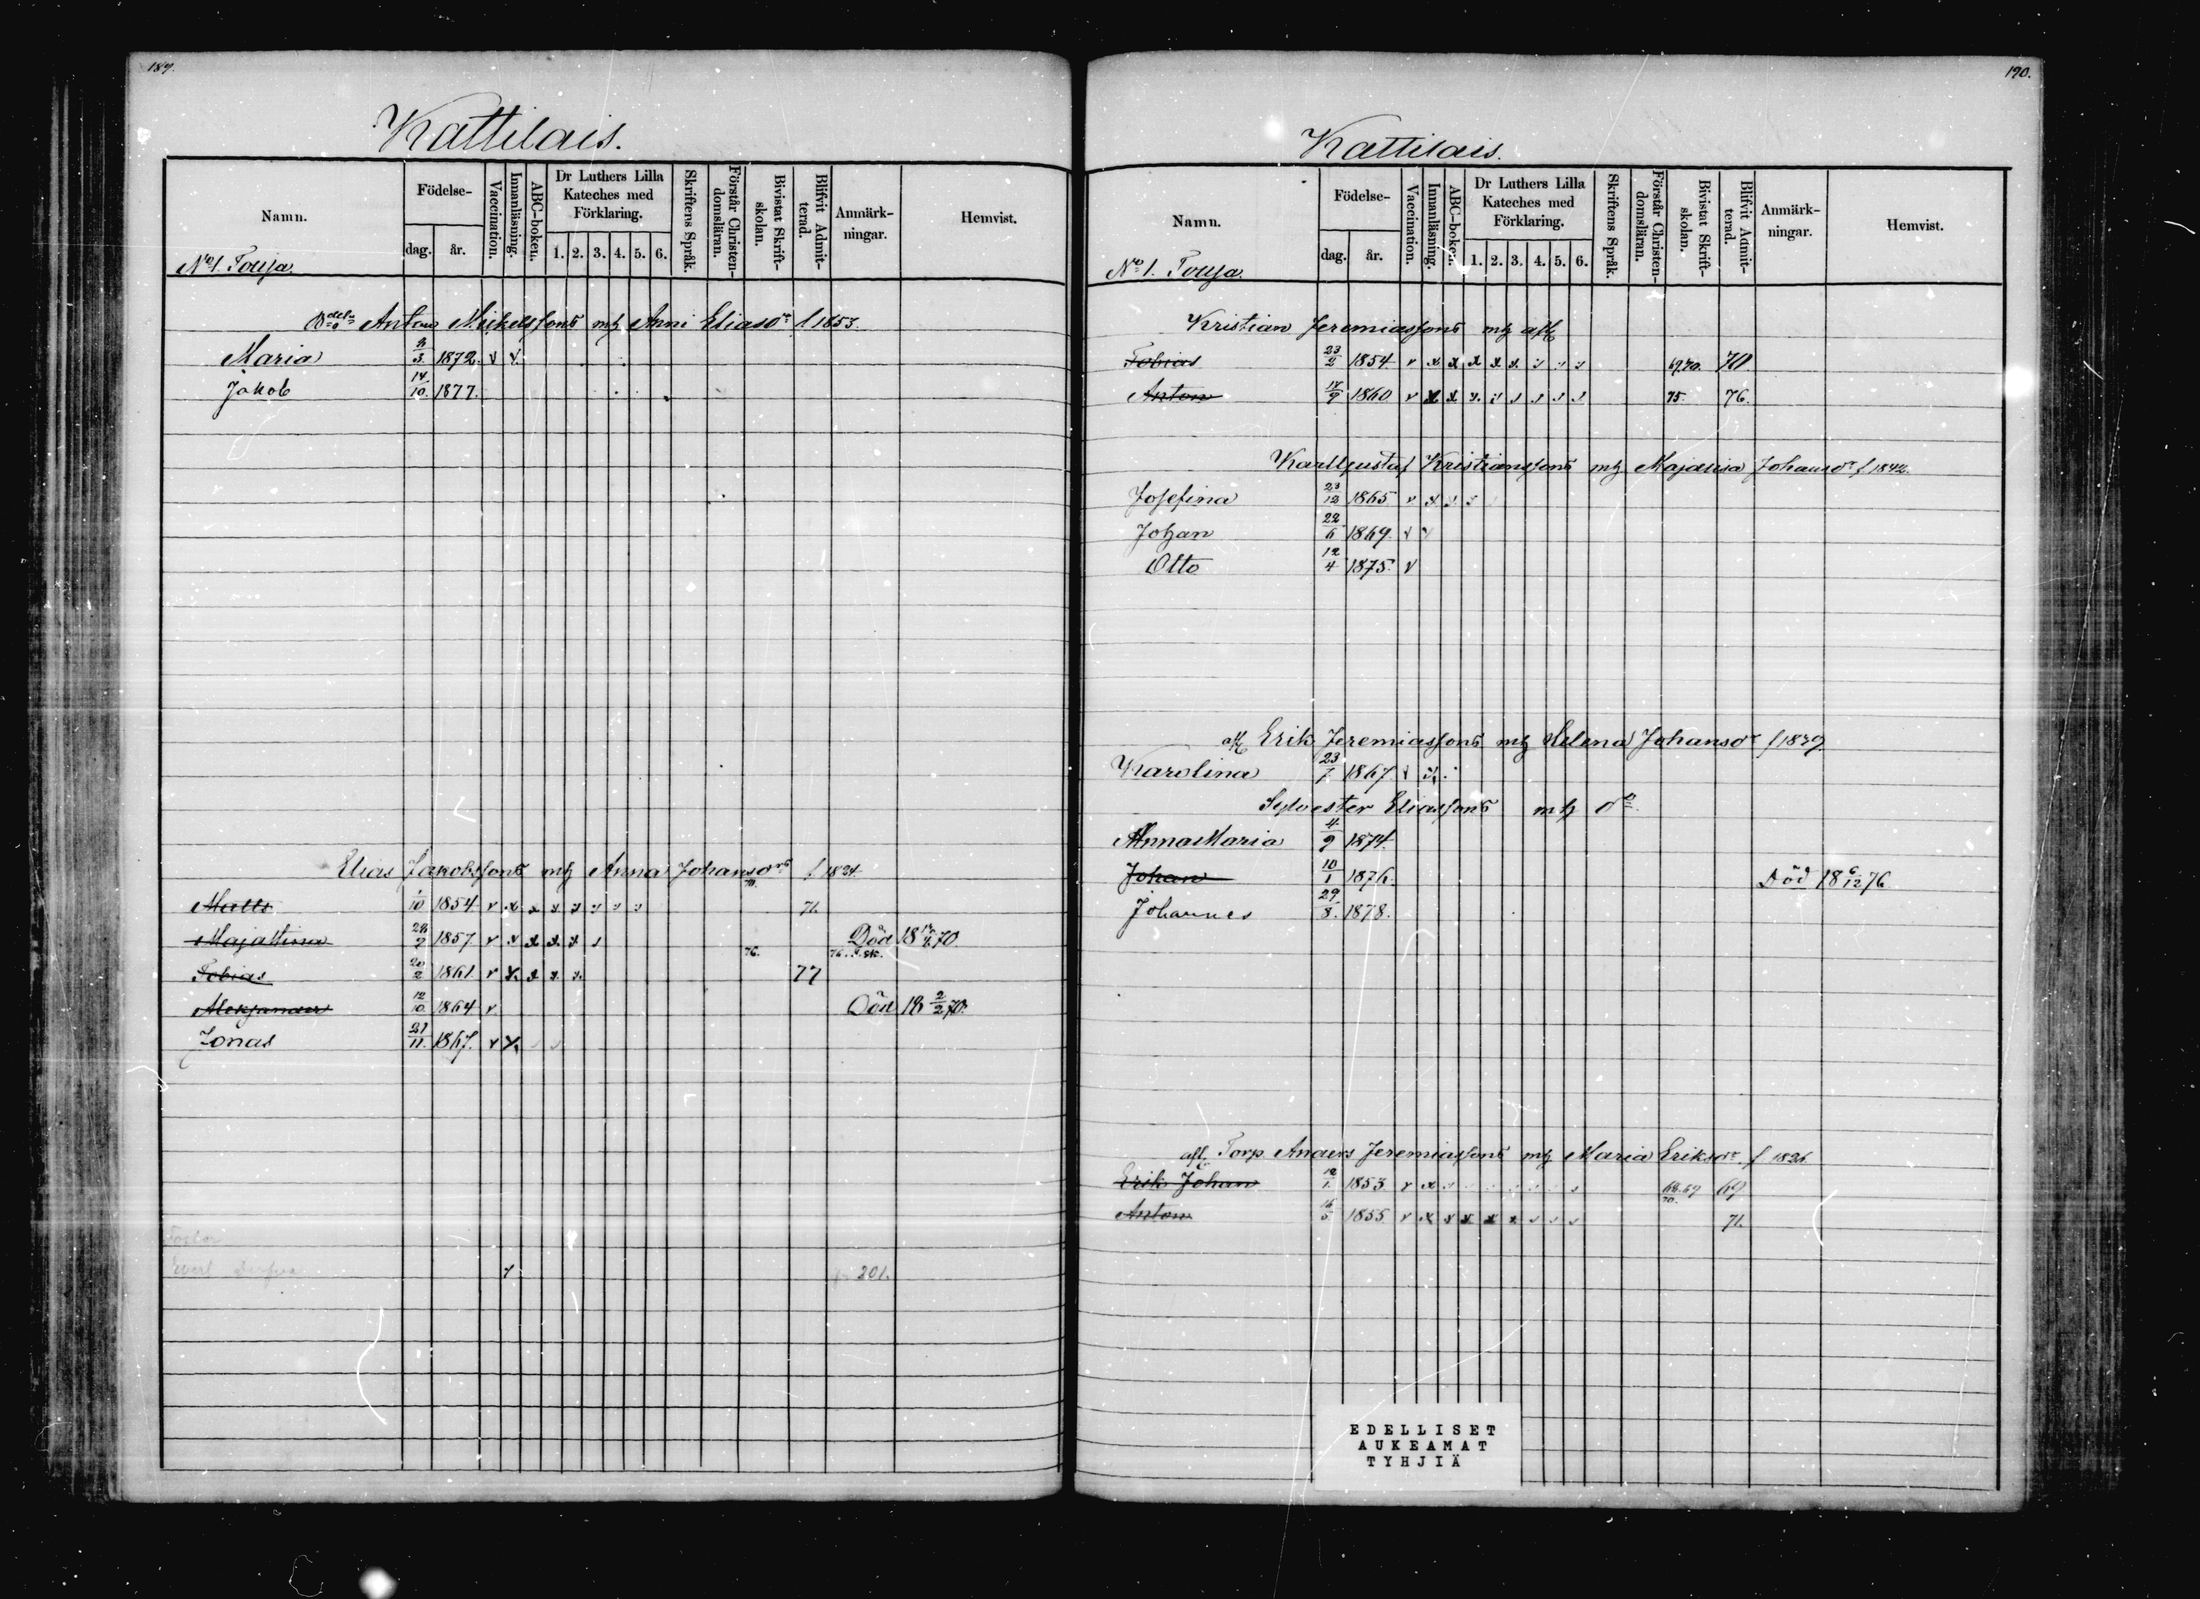 189.
Kattilais.
Namn. Födelse- dag. år. Vaccination. Innanläsning. ABC-boken. Dr Luthers Lilla Kateches med Förklaring. 1. 2. 3. 4. 5. 6. Skriftens Språk. Förstår Christendomsläran. Bivistat Skriftskolan. Blifvit Admitterad. Anmärkningar. Hemvist.
No 1. Touja.
Anton Mickelssons mh Anni Eliasdr f 1853.
Maria 3. 1872. v v
Jakob 14/10. 1877.
Elias Jakobssons mh Anna Johansdrs f 1824.
Matts 1854 v x x x x 71.
Majastina 1857. v x x x x Död 18 70
Tobias 20/2 1861. v x x x x 76. 77
Aleksander 12/10 1864 v Död 18 2/2 70.
Jonas 21/11. 1867. v x
201.
190.
Kattilais.
Namn. Födelse- dag. år. Vaccination. Innanläsning. ABC-boken. Dr Luthers Lilla Kateches med Förklaring. 1. 2. 3. 4. 5. 6. Skriftens Språk. Förstår Christendomsläran. Bivistat Skriftskolan. Blifvit Admitterad. Anmärkningar. Hemvist.
No 1. Touja.
Kristian Jeremiassons mh
Tobias 23/2 1854. v x x x x x 69.70. 70
Anton 1860. v x x x 75. 76.
Karl Gustaf Kristianssons mh Majalisa Johansdr f 1842.
Josefina 23/12 1865. v x
Johan 22/6 1869. v v
Otto 12/4 1875. v
Erik Jeremiassons mh Helena Johansdr f 1839.
Karolina 23/7 1867. v
Sylvester Eliassons mh do
Anna Maria 4/9 1874.
Johan 10/1 1876. Död 18 6/12 76
Johannes 29/8. 1878.
Torp. Anders Jeremiassons mh Maria Eriksdr. f 1826
Erik Johan 12/1. 1853 v x 68.69 70. 69
Anton 1855 v x x x x x 71.
EDELLISET
AUKEAMAT
TYHJIÄ